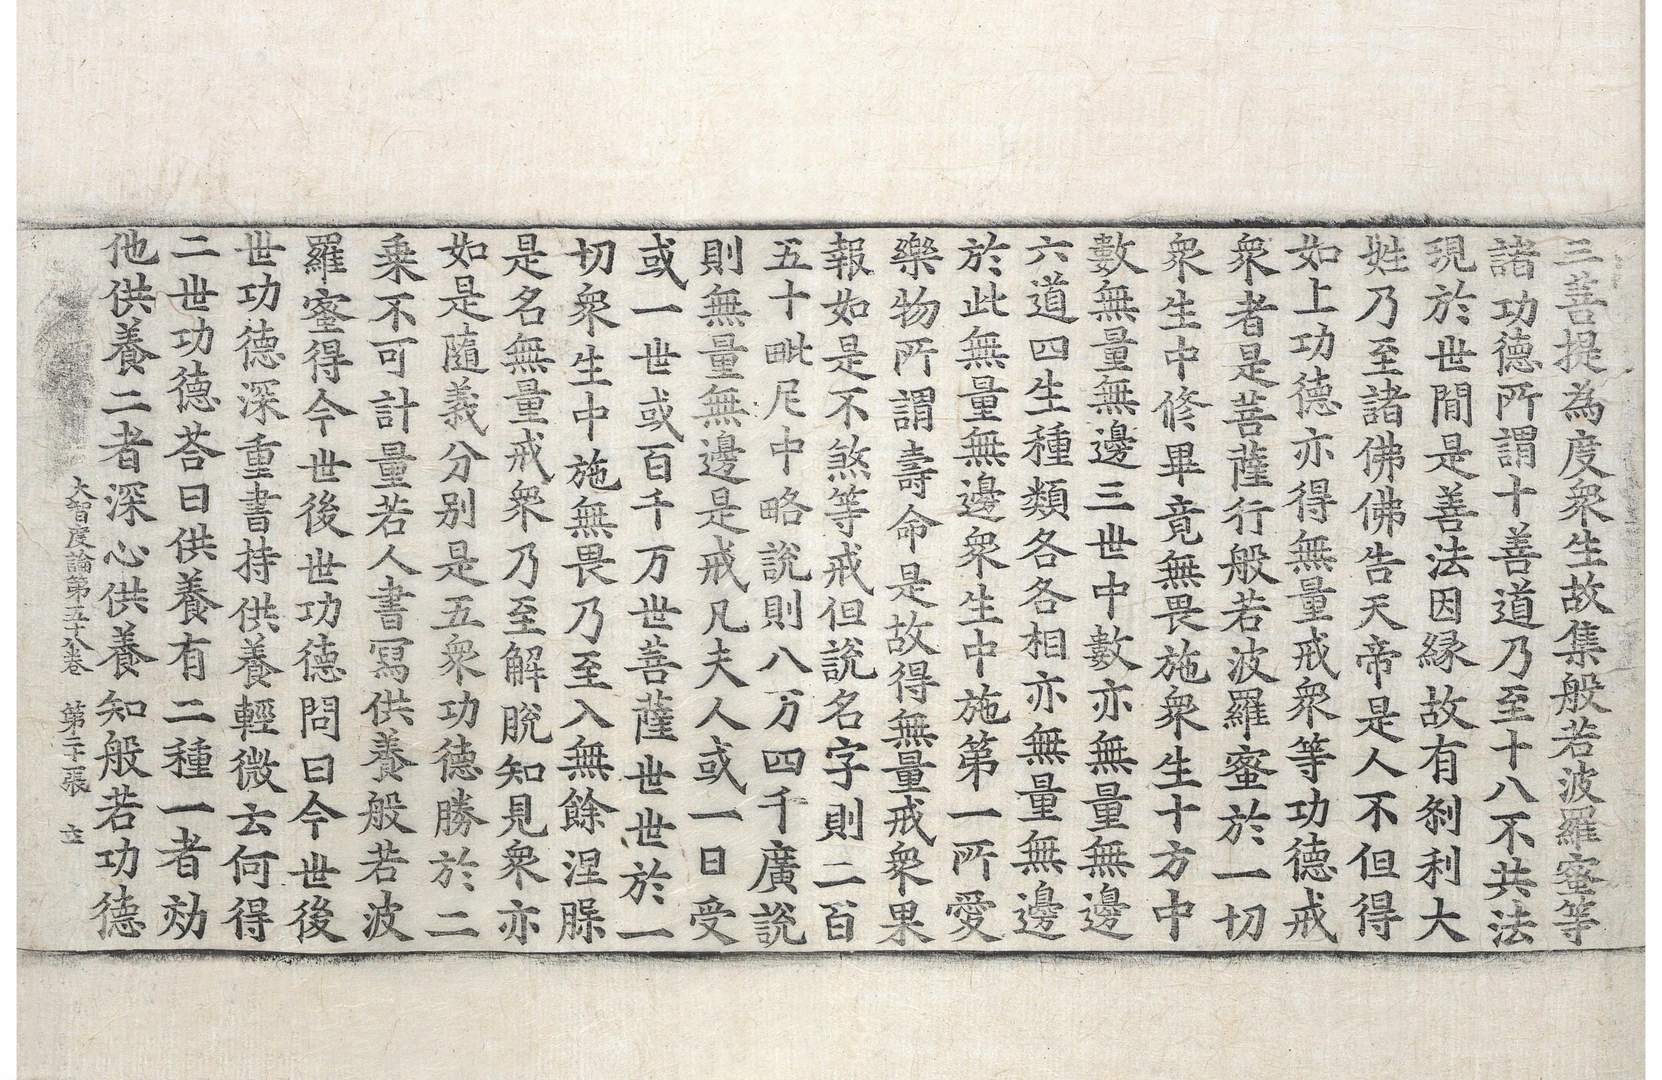 三菩提為度衆生故集般若波羅蜜等
諸功德所謂十善道乃至十八不共法
現於世間是善法因縁故有剎利大
姓乃至諸佛佛告天帝是人不但得
如上功德亦得無量戒衆等功德戒
衆者是菩薩行般若波羅蜜於一切
衆生中修畢竟無畏施衆生十方中
數無量無邊三世中數亦無量無邊
六道四生種類各各相亦無量無邊
於此無量無邊衆生中施第一所愛
樂物所謂壽命是故得無量戒衆果
報如是不煞等戒但說名字則二百
五十毗尼中略說則八万四千廣說
則無量無邊是戒凡夫人或一日受
或一世或百千万世菩薩世世於一
切衆生中施無畏乃至入無餘涅槃
是名無量戒衆乃至解脫知見衆亦
如是隨義分別是五衆功德勝於二
乗不可計量若人書寫供養般若波
羅蜜得今世後世功德問曰今世後
世功德深重書持供養輕微云何得
二世功德荅曰供養有二種一者効
他供養二者深心供養知般若功德
大智度論第五十八卷　第二十張　立